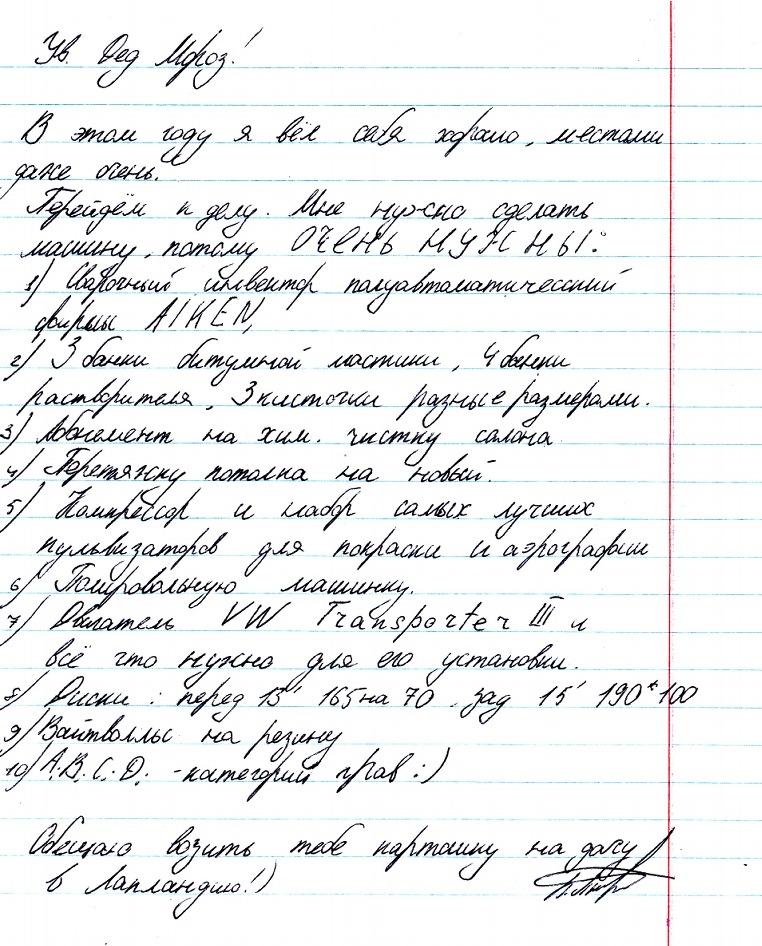 Ув. Дед Мороз!
В этом году я вёл себя хорошо, местами
даже очень.
Перейдём к делу. Мне нужно сделать
машину, потому ОЧЕНЬ НУЖНЫ:
1) Сварочный инвектор полуавтоматический
фирмы AIKEN,
2) 3 банки битумной мастики, 4 банки
растворителя, 3 кисточки разные размерами.
3) Абонемент на хим. чистку салона
4) Перетяжку потолка на новый.
5) Компрессор и набор самых лучших
пульвизаторов для покраски и аэрографии
6) Полировальную машинку.
7) Двигатель VW Transporter III и
всё что нужно для его установки.
8) Диски: перед 13' 165 на 70. зад 15' 190*100
9) Вайтволлы на резину
10) A.B.C.D. - категорий прав :)
Обещаю возить тебе картошку на дачу
в Лапландию!)